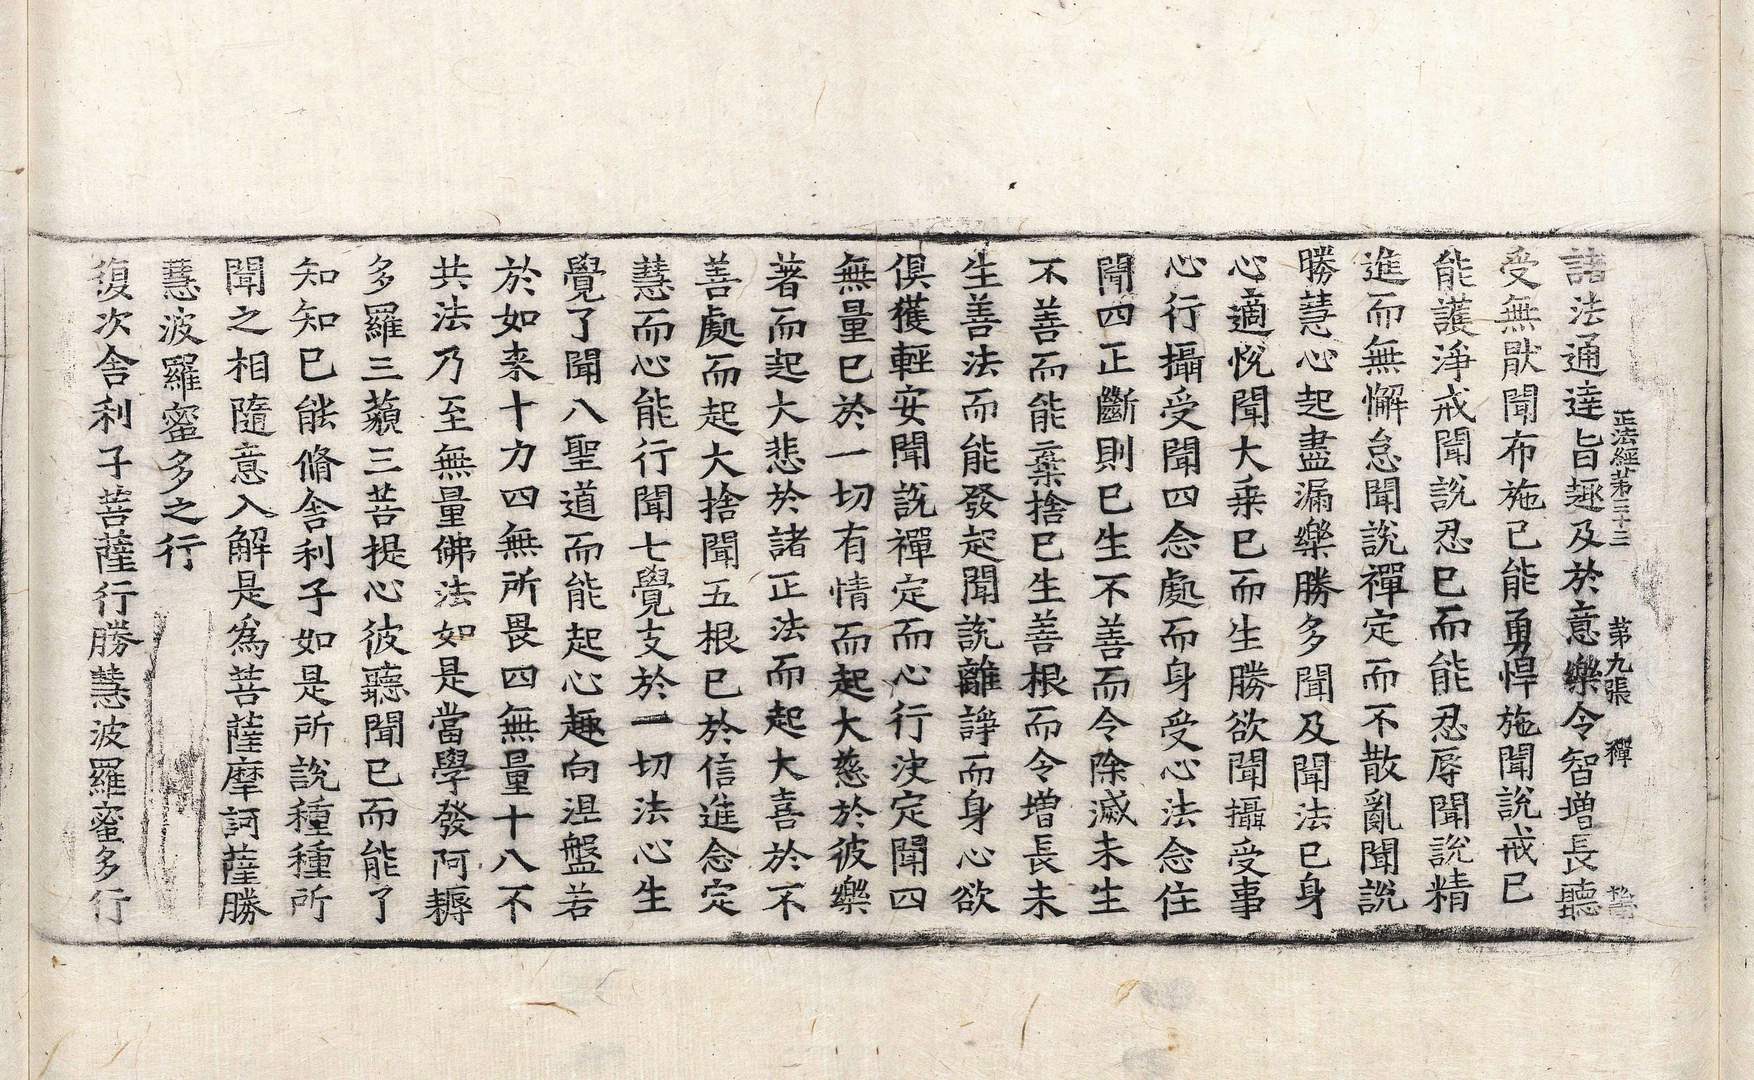 正法經第三十三 第九張 禪
諸法通達旨趣及於意樂令智增長聽
受無猒聞布施已能勇悍施聞說戒已
能護淨戒聞說忍已而能忍辱聞說精
進而無懈怠聞說禪定而不散亂聞說
勝慧心起盡漏樂勝多聞及聞法已身
心適悅聞大乘已而生勝欲聞攝受事
心行攝受聞四念處而身受心法念住
聞四正斷則已生不善而令除滅未生
不善而能棄捨已生善根而令增長未
生善法而能發起聞說離諍而身心欲
俱獲輕安聞說禪定而心行決定聞四
無量已於一切有情而起大慈於彼樂
著而起大悲於諸正法而起大喜於不
善處而起大捨聞五根已於信進念定
慧而心能行聞七覺支於一切法心生
覺了聞八聖道而能起心趣向涅盤若
於如来十力四無所畏四無量十八不
共法乃至無量佛法如是當學發阿耨
多羅三藐三菩提心彼聽聞已而能了
知知已能脩舍利子如是所說種種所
聞之相隨意入解是為菩薩摩訶薩勝
慧波羅蜜多之行
復次舍利子菩薩行勝慧波羅蜜多行